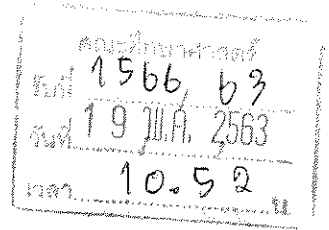 คณะศึกษาศาสตร์
รับที่ 1566, 63
วันที่ 19 พ.ค. 2563
เวลา 10.52 น